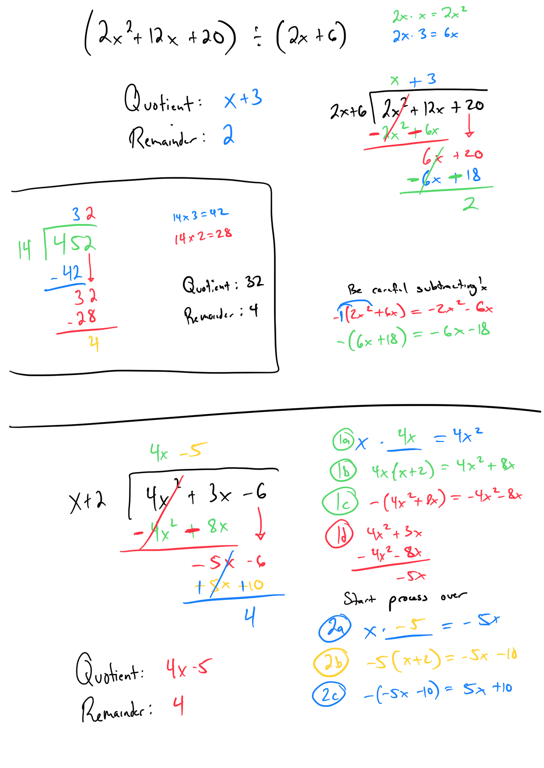 (2x² + 12x + 20) ÷ (2x + 6)
2x · x = 2x²
2x · 3 = 6x
Quotient: x + 3
Remainder: 2
x + 3
2x + 6 2x² + 12x + 20
- 2x² - 6x
6x + 20
- 6x - 18
2
32
14 452
- 42
32
- 28
4
14 x 3 = 42
14 x 2 = 28
Quotient: 32
Remainder: 4
Be careful subtracting!
-1(2x² + 6x) = -2x² - 6x
-(6x + 18) = -6x - 18
4x - 5
x + 2 4x² + 3x - 6
- 4x² - 8x
- 5x - 6
+ 5x + 10
4
Quotient: 4x - 5
Remainder: 4
1a x · 4x = 4x²
1b 4x(x + 2) = 4x² + 8x
1c -(4x² + 8x) = -4x² - 8x
1d 4x² + 3x
- 4x² - 8x
-5x
Start process over
2a x · -5 = -5x
2b -5(x + 2) = -5x - 10
2c -(-5x - 10) = 5x + 10